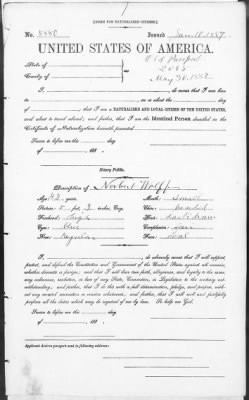 [FORM FOR NATURALIZED CITIZEN.]
No. 5480 Issued Jan. 18. 1887.
UNITED STATES OF AMERICA.
State of
County of
Old Passport
May 31. 1882
I, , do swear that I was born
in , on or about the day of
, that I am a NATURALIZED AND LOYAL CITIZEN OF THE UNITED STATES,
and about to travel abroad; and further, that I am the Identical Person described in the
Certificate of Naturalization herewith presented.
Sworn to before me this day
of , 188 .
Notary Public.
Description of Norbert Wolff
Age: 42 years Mouth: Small
Stature: 5 feet, 3 inches, Eng. Chin:
Forehead: high Hair:
Eyes: blue Complexion: fair
Nose: regular Face: oval
I, , do solemnly swear that I will support,
protect, and defend the Constitution and Government of the United States against all enemies,
whether domestic or foreign; and that I will bear true faith, allegiance, and loyalty to the same,
any ordinance, resolution, or law of any State, Convention, or Legislature to the contrary not-
withstanding; and further, that I do this with a full determination, pledge, and purpose, with-
out any mental reservation or evasion whatsoever; and further, that I will well and faithfully
perform all the duties which may be required of me by law. So help me God.
Sworn to before me this day
of , 188 .
Applicant desires passport sent to following address: